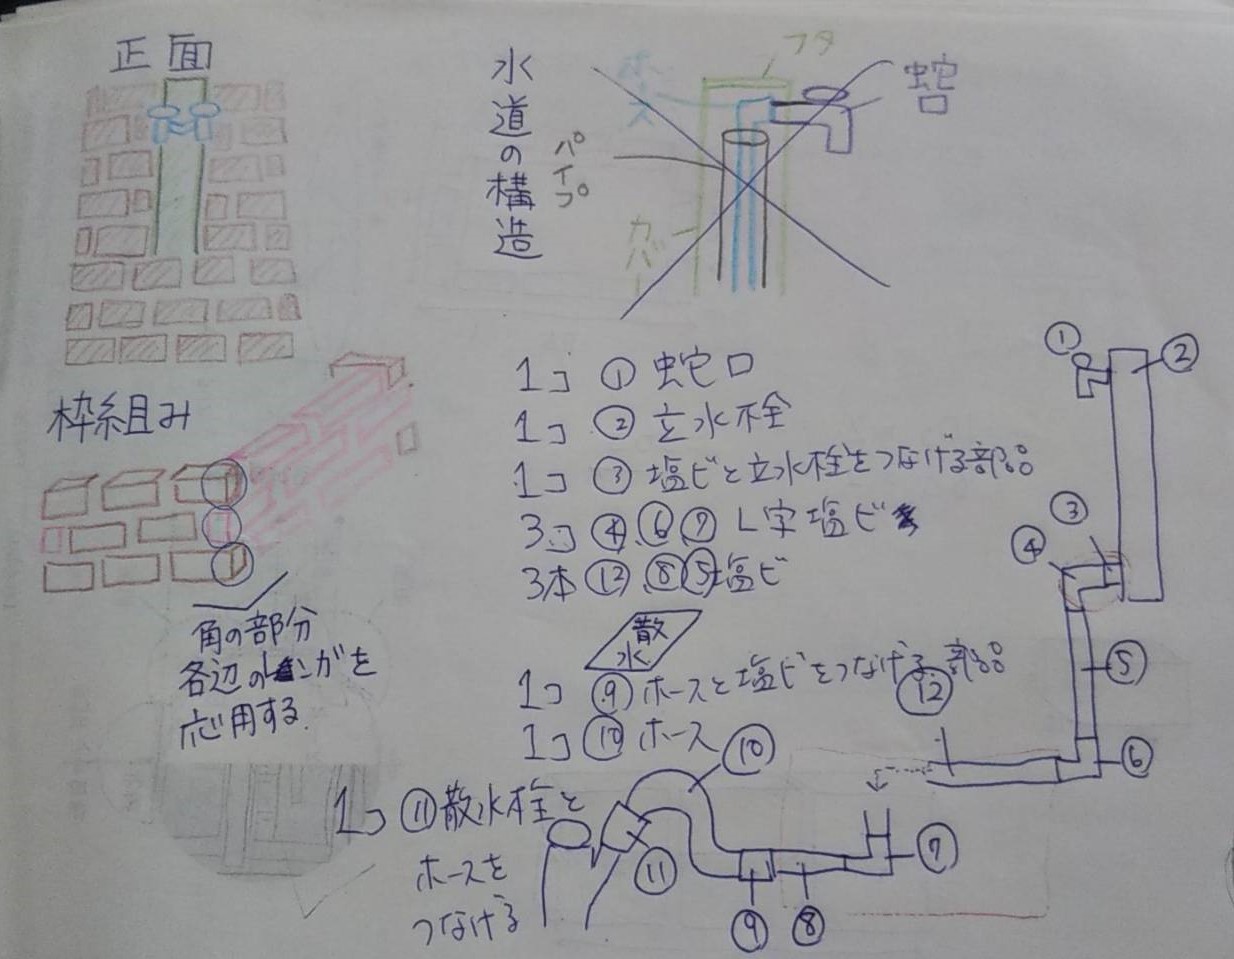 正面
水道の構造
フタ
ホース
蛇口
パイプ
カバー
枠組み
角の部分
各辺のレンガを
応用する.
1コ ① 蛇口
1コ ② 立水栓
1コ ③ 塩ビと立水栓をつなげる部品
3コ ④,⑥,⑦ L字塩ビ
3本 ⑫,⑧⑤塩ビ
散水
1コ ⑨ ホースと塩ビをつなげる部品
1コ ⑩ ホース
1コ ⑪ 散水栓と
ホースを
つなげる
①
②
③
④
⑤
⑥
⑫
⑩
⑦
⑪
⑨
⑧